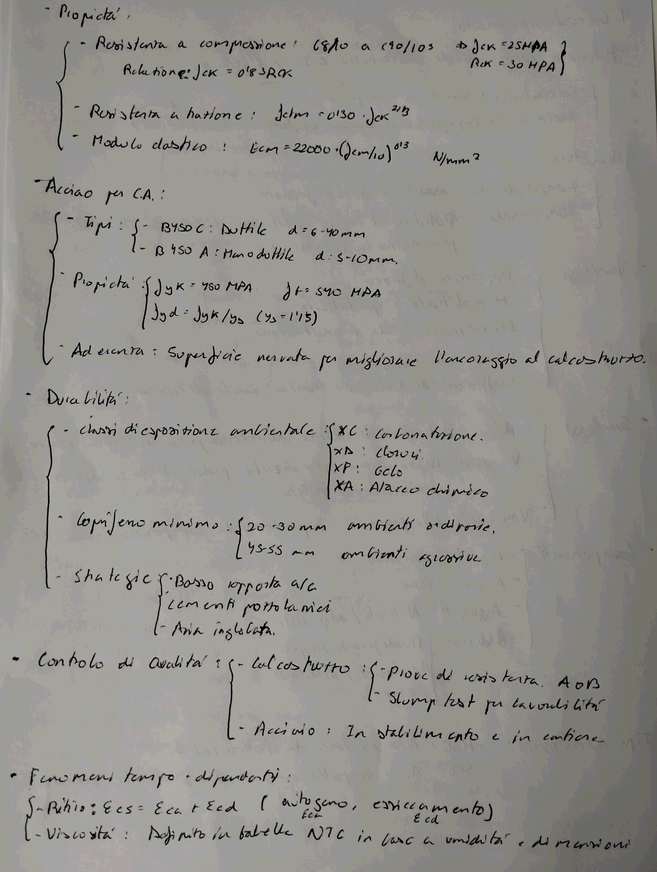 - Propietá:
- Resistenza a compressione: C8/10 a C90/105 => fck = 25 MPA
Relatione: fck = 0'83 RCK    Rck = 30 MPA
- Resistenza a trazione: fctm = 0'30 · fck^2/3
- Modulo elastico: Ecm = 22000 · (fcm/10)^0'3 N/mm²
- Acciao per C.A.:
- Tipi: - B450 C: Duttile d = 6-40mm
- B 450 A: Meno duttile d: 5-10mm.
- Propietá: fyk = 450 MPA ft = 540 MPA
fyd = fyk/γs (γs = 1'15)
- Aderenza: Superficie nervata per migliorare l'ancoraggio al calcostruzzo.
- Durabilitá:
- Classi di esposizione ambientale: XC: Carbonatazione.
XD: cloruri
XF: Gelo
XA: Attacco chimico
- Copriferro minimo: 20-30mm ambienti ordinarie,
45-55 mm ambienti agressive
- Strategie - Basso rapporto a/c
cementi pozzolanici
- Aria inglobata.
• Controlo di Qualitá: - Calcostruzzo: - Prove di resistenza. A o B
- Slump test per lavorabilitá
- Acciaio: In stabilimento e in cantiere
• Fenomeni tempo-dipendenti:
- Ritiro: Ɛcs = Ɛca + Ɛcd (autogeno, essiccamento)
Ɛca Ɛcd
- Viscositá: Definito in tabelle NTC in base a umiditá e dimensioni